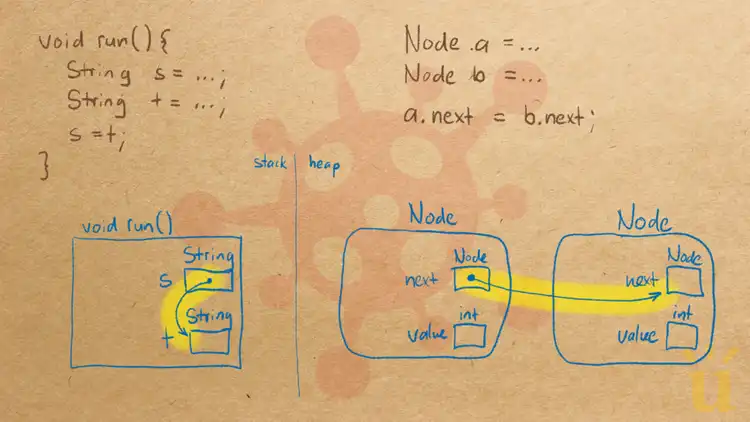 void run() {
String s = ...;
String t = ...;
s = t;
}
Node a = ...
Node b = ...
a.next = b.next;
stack
heap
void run()
String
s
String
t
Node
Node
next
int
value
Node
Node
next
int
value
ü